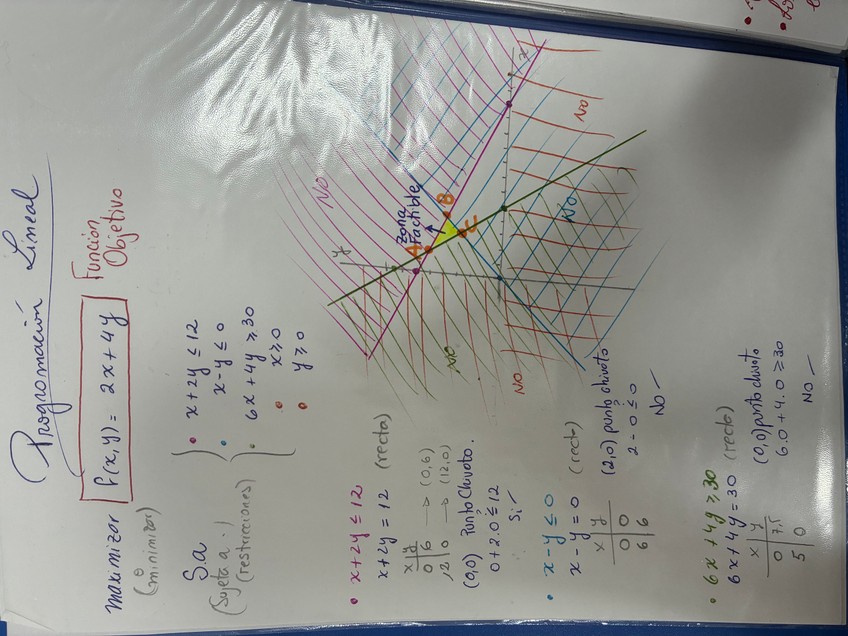 Programación Lineal
maximizar f(x,y) = 2x+4y Función Objetivo
(o minimizar)
S.a
(Sujeta a:)
(restricciones)
• x+2y ≤ 12
• x-y ≤ 0
• 6x+4y ≥ 30
• x ≥ 0
• y ≥ 0
• x+2y ≤ 12
x+2y = 12 (recta)
x | y
0 | 6 → (0,6)
12 | 0 → (12,0)
(0,0) Punto Chivato.
0+2.0 ≤ 12
?
Si
• x-y ≤ 0
x-y = 0 (recta)
x | y
0 | 0
6 | 6
(2,0) punto chivato
2-0 ≤ 0
?
NO
• 6x+4y ≥ 30
6x+4y = 30 (recta)
x | y
0 | 7,5
5 | 0
(0,0) punto chivato
6.0+4.0 ≥ 30
NO
y
NO
Zona
Factible
A
B
C
x
NO
NO
NO
NO